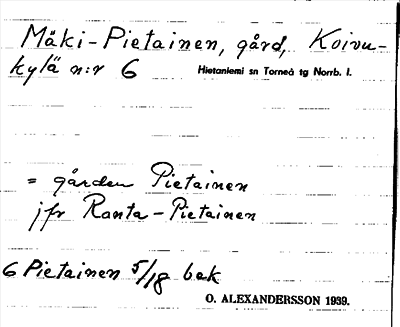 Mäki-Pietainen, gård, Koivu-
kylä n:r 6 Hietaniemi sn Torneå tg Norrb. l.
= gården Pietainen
jfr Ranta-Pietainen
6 Pietainen 5/18 bak
O. ALEXANDERSSON 1939.